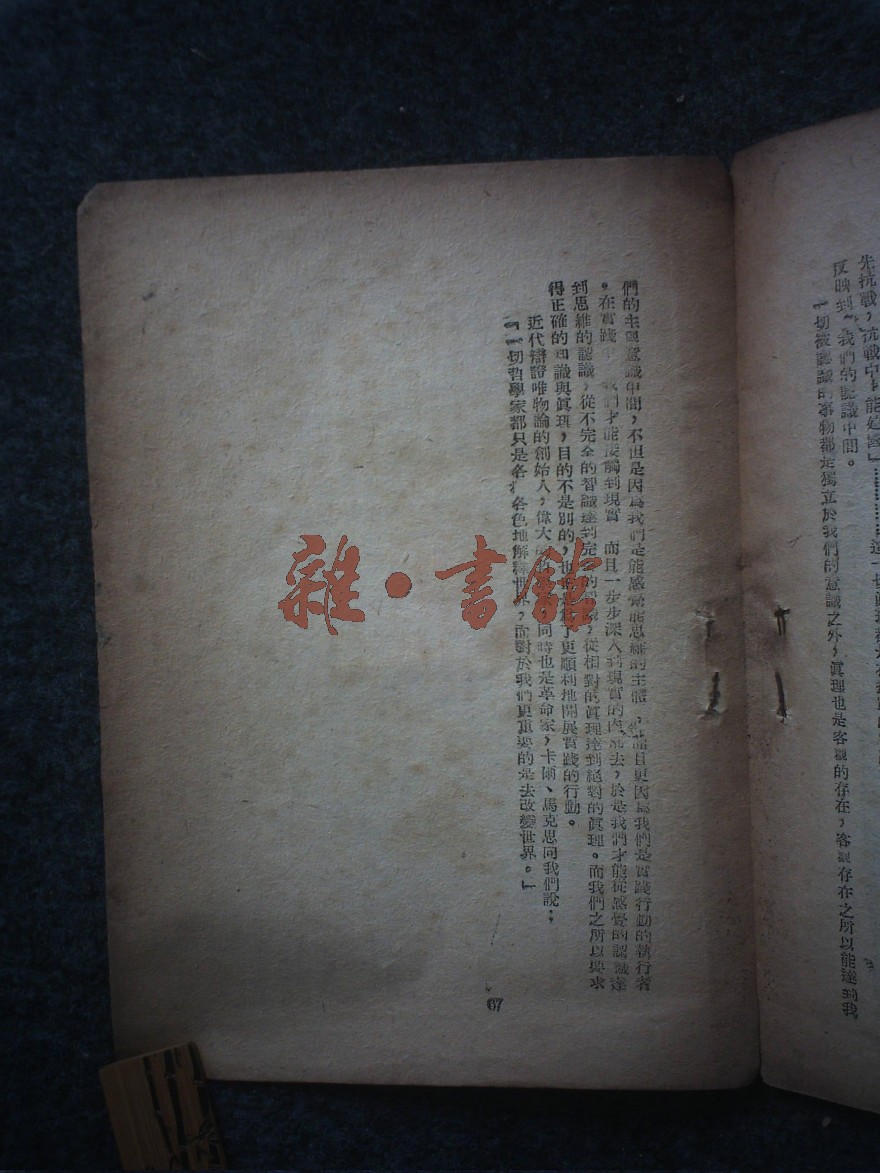 先抗戰，抗戰中才能建國』…………這一切
反映到我們的認識中間。
一切被認識的事物都是獨立於我們的意識之外，眞理也是客觀的存在，客觀存在之所以能達到我
們的主觀意識中間，不但是因爲我們是能感覺能思維的主體，並而且更因爲我們是實踐行動的執行者
。在實踐中我們才能接觸到現實，而且一步步深入到現實的內部去，於是我們才能從感覺的認識達
到思維的認識，從不完全的智識達到完全的智識，從相對的眞理達到絕對的眞理。而我們之所以要求
得正確的知識與眞理，目的不是別的，也就是爲了更順利地開展實踐的行動。
近代辯證唯物論的創始人，偉大的 同時也是革命家，卡爾、馬克思向我們說；
『一切哲學家都只是各 各色地解釋世界，而對於我們更重要的是去改變世界。』
67
雜·書館